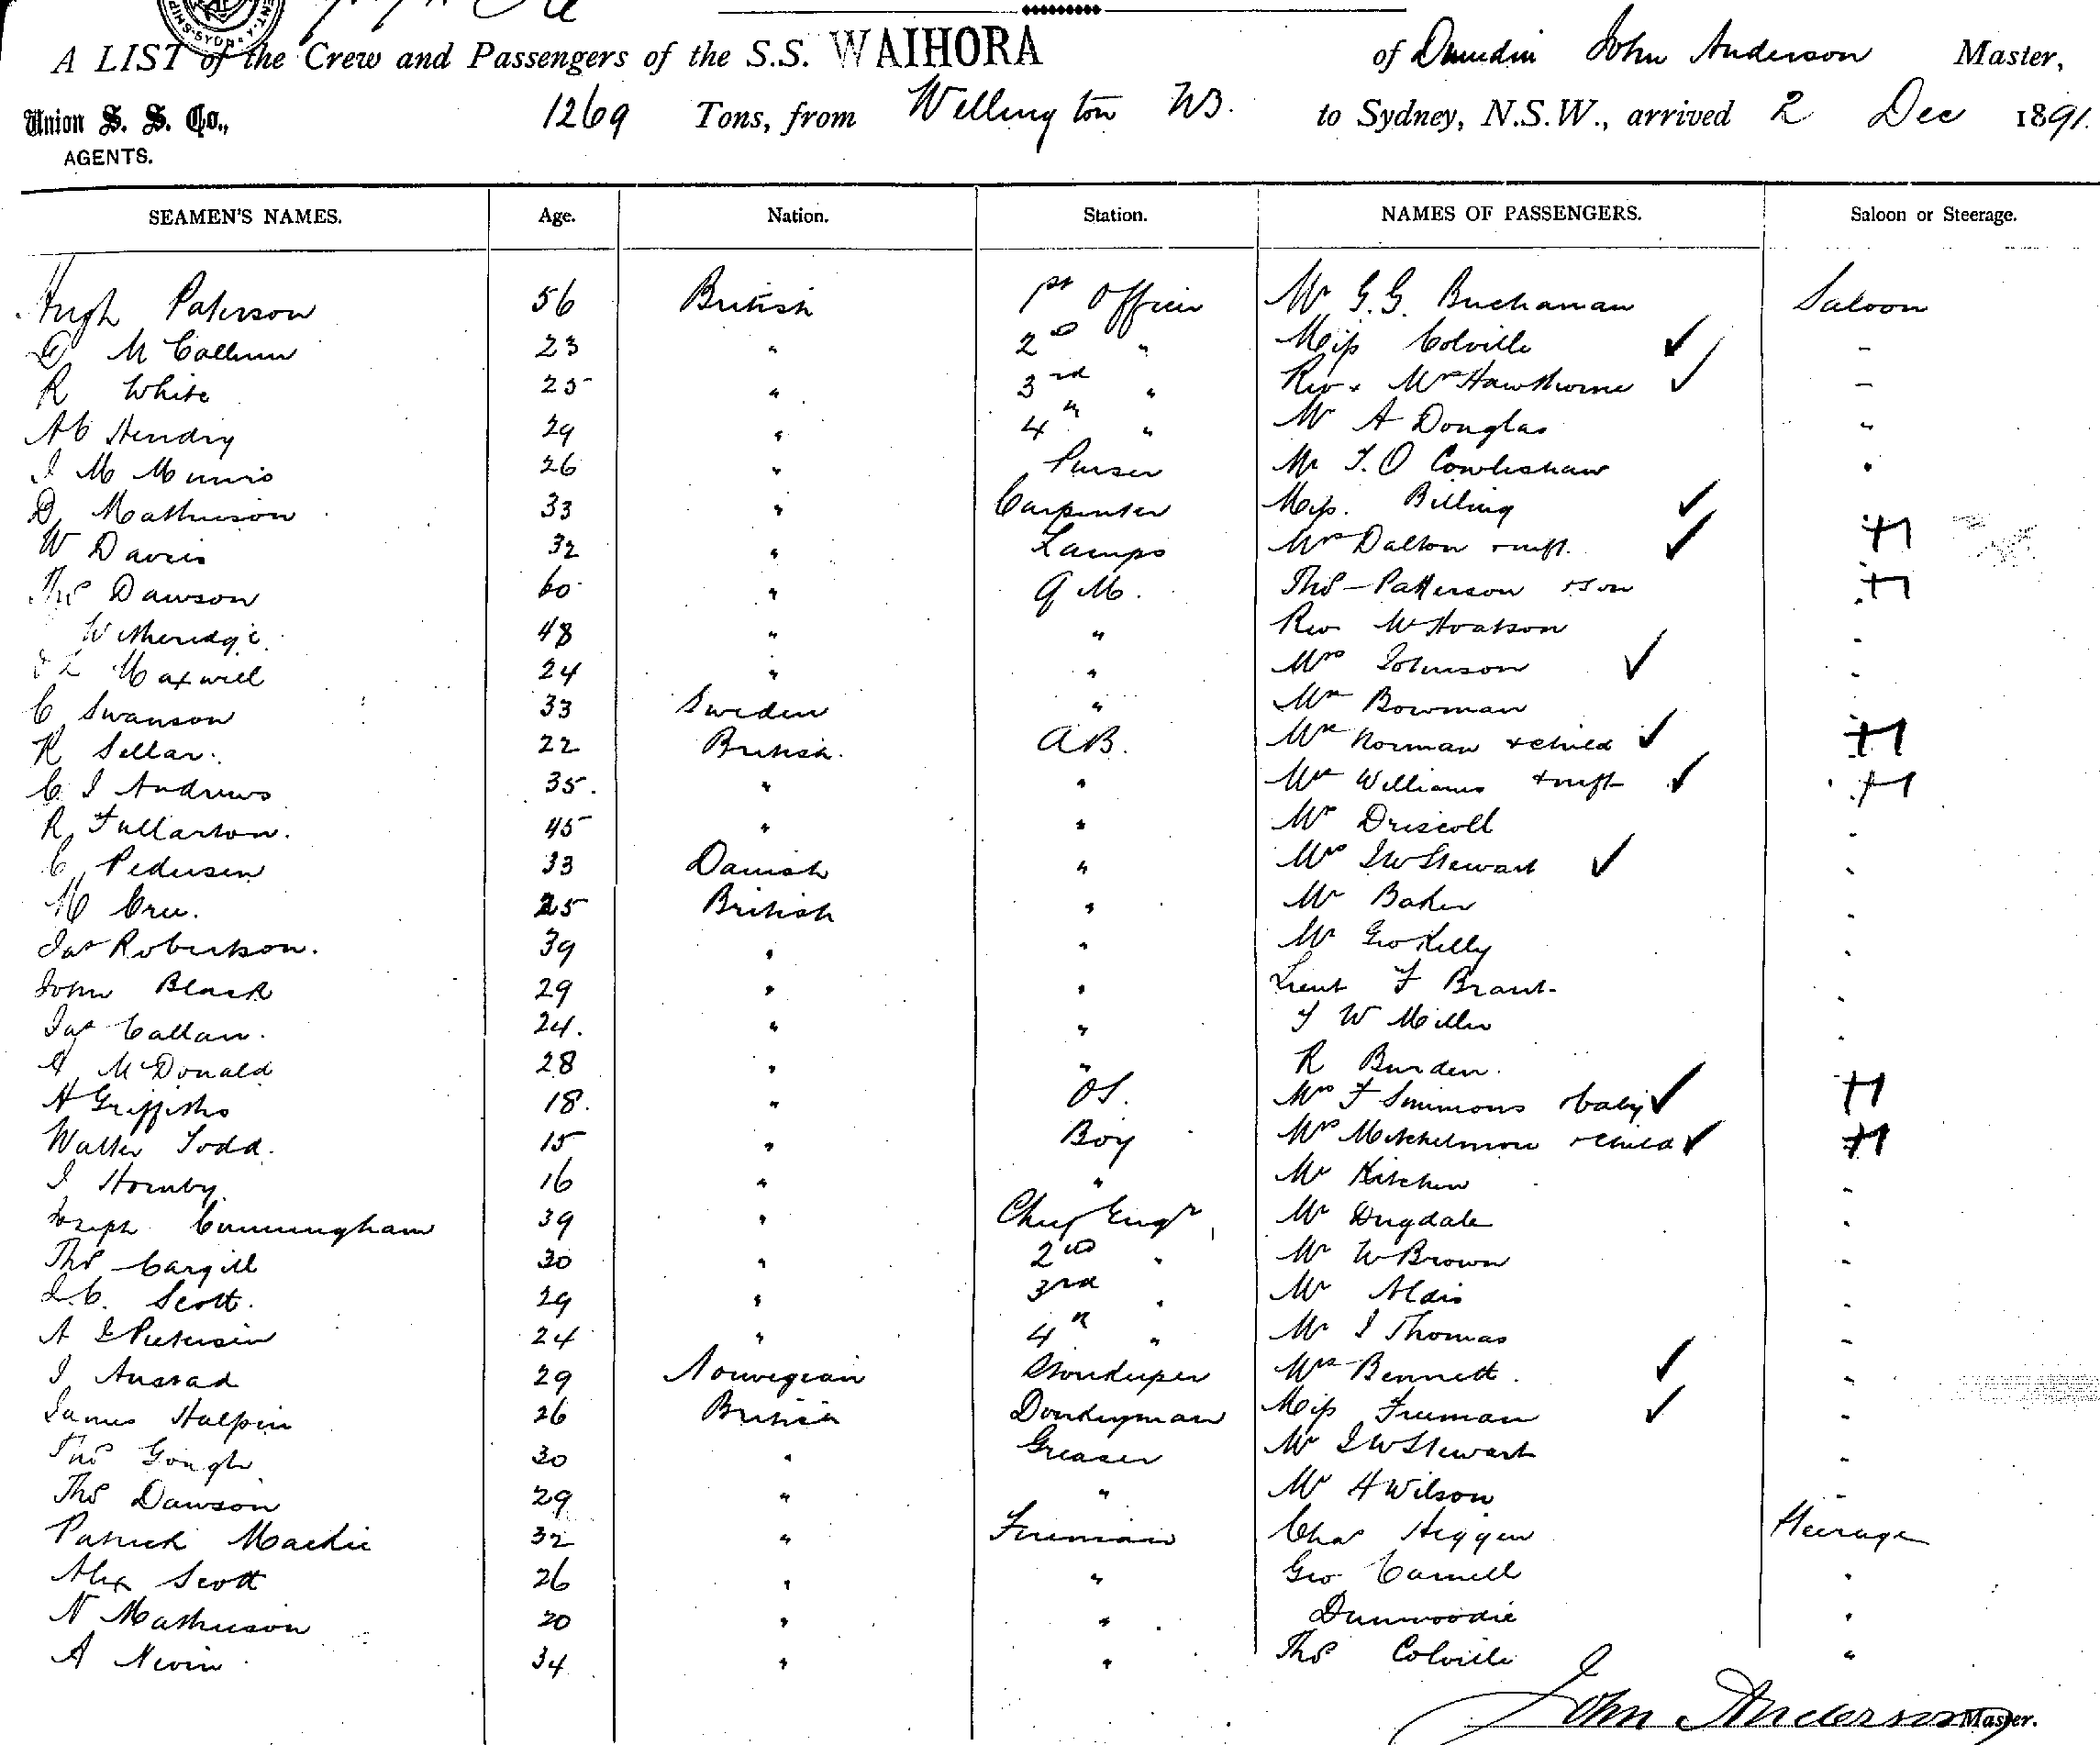 A LIST of the Crew and Passengers of the S.S. WAIHORA of Dunedin John Anderson Master,
Union S. S. Co., 1269 Tons, from Wellington to Sydney, N.S.W., arrived 2 Dec 1891.
AGENTS.
SEAMEN'S NAMES. Age. Nation. Station. NAMES OF PASSENGERS. Saloon or Steerage.
Hugh Paterson 56 British 1st Officer Mr G. G. Buchanan Saloon
D McCallum 23 " 2nd " Miss Colville ✓ -
R White 25 " 3rd " Rev + Mrs Hawthorne ✓ -
Hendry 29 " 4th " Mr A Douglas "
J M Munro 26 " Purser Mr J. O Cowlishaw "
D Mathieson 33 " Carpenter Miss Billing ✓
W Davies 32 " Lamps Mrs Dalton + inft. ✓
Thos Dawson 60 " Q M. Thos Patterson + son
Witheridge 48 " " Rev W Hoatson -
Maxwell 24 " " Mrs Johnson ✓ -
C Swanson 33 Sweden " Bowman -
R Sellar. 22 British. AB. Norman + child ✓
C J Andrews 35. " " Williams + inft ✓
R Fullarton. 45 " " Mr Driscoll -
C Pedersen 33 Danish " Mrs J W Stewart ✓ -
Cree. 25 British " Mr Baker -
Jas Robertson. 39 " " Mr Geo Kelly -
John Black 29 " " Lieut F Brant -
Jas Callan. 24. " " W Miller -
McDonald 28 " " R Burden. -
H Griffiths 18. " OS. Mrs F Simmons + baby ✓
Walter Todd. 15 " Boy Mrs Mitchelmore + child ✓
J Hornby. 16 " " Mr Kitchen -
Joseph Cunningham 39 " Chief Engr Mr Dugdale -
Thos Cargill 30 " 2nd " Mr W Brown -
J. C. Scott. 29 " 3rd " Mr Aldis -
A Petersen 24 " 4th " Mr J Thomas -
J 29 Norwegian Storekeeper Mrs Bennett. ✓ -
James Halpin 26 British Donkeyman Miss Freeman ✓ -
Thos Gough 30 " Greaser Mr J W Stewart -
Thos Dawson 29 " " Mr H Wilson -
Patrick Mackie 32 " Fireman Chas Higgen Steerage
Alex Scott 26 " " Geo "
N Mathieson 20 " " Dunwoodie "
A Nevin 34 " " Thos Colville "
John Anderson Master.